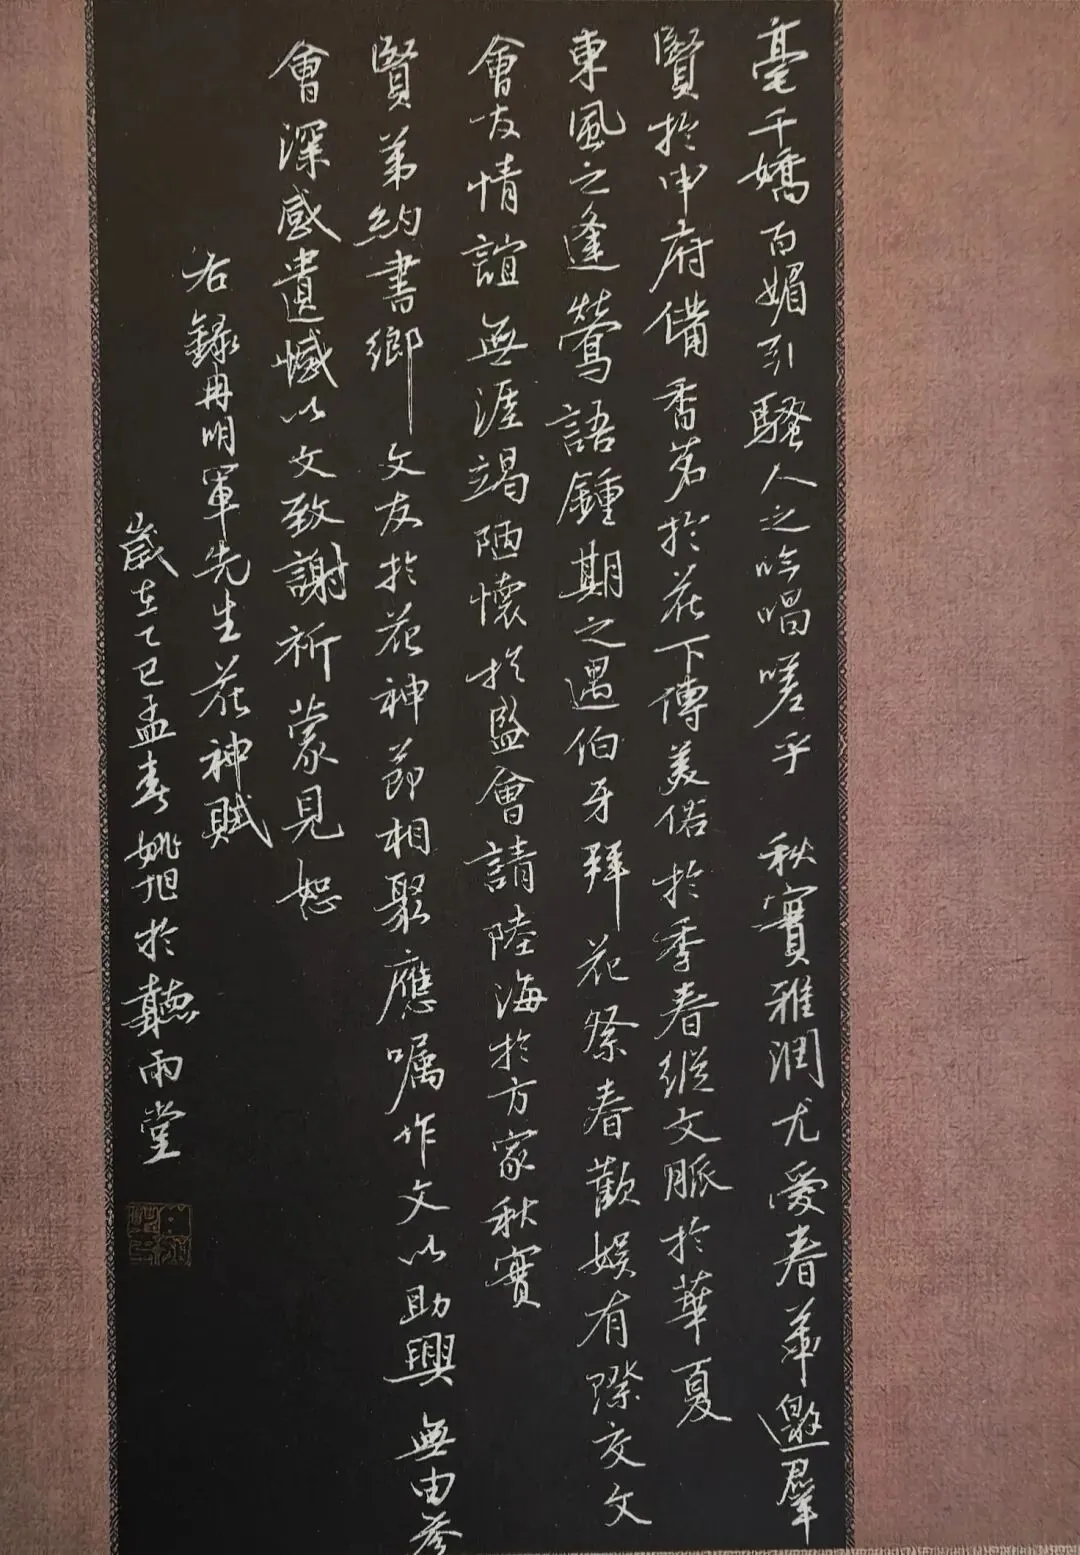 毫千嬌百媚引騷人之吟唱嗟乎 秋實雅潤尤愛春華邀羣
賢於申府備香茗於花下傳美俗於季春縱文脈於華夏
東風之逢鶯語鍾期之遇伯牙拜花祭春歡娛有際交文
會友情誼無涯竭陋懷於盛會請陸海於方家秋實
賢弟約書鄉文友於花神節相聚應嘱作文以助興 無由參
會深感遺憾以文致謝祈蒙見恕
右録冉明軍先生花神賦
歲在乙巳孟春姚旭於聽雨堂